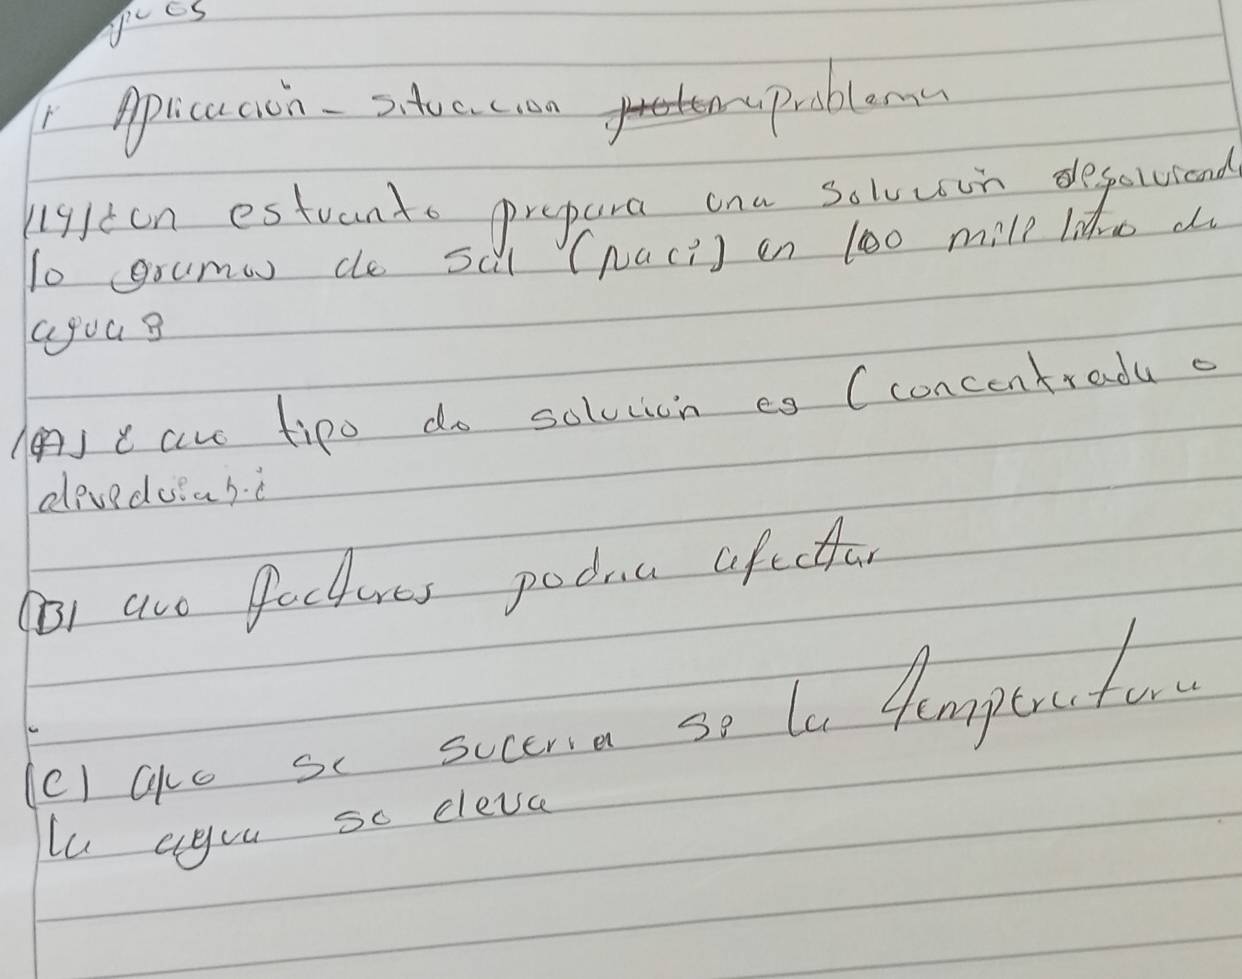 Aplicación - situación problema
un estuante prepara una solución desolviend
10 gramos de sal (Naci) en 100 mill litro de
agua?
(A) ¿ que tipo de solución es (concentrada o
(B) que factores podria afecttar
(C) que se suceria si la temperatura
la agua se eleva